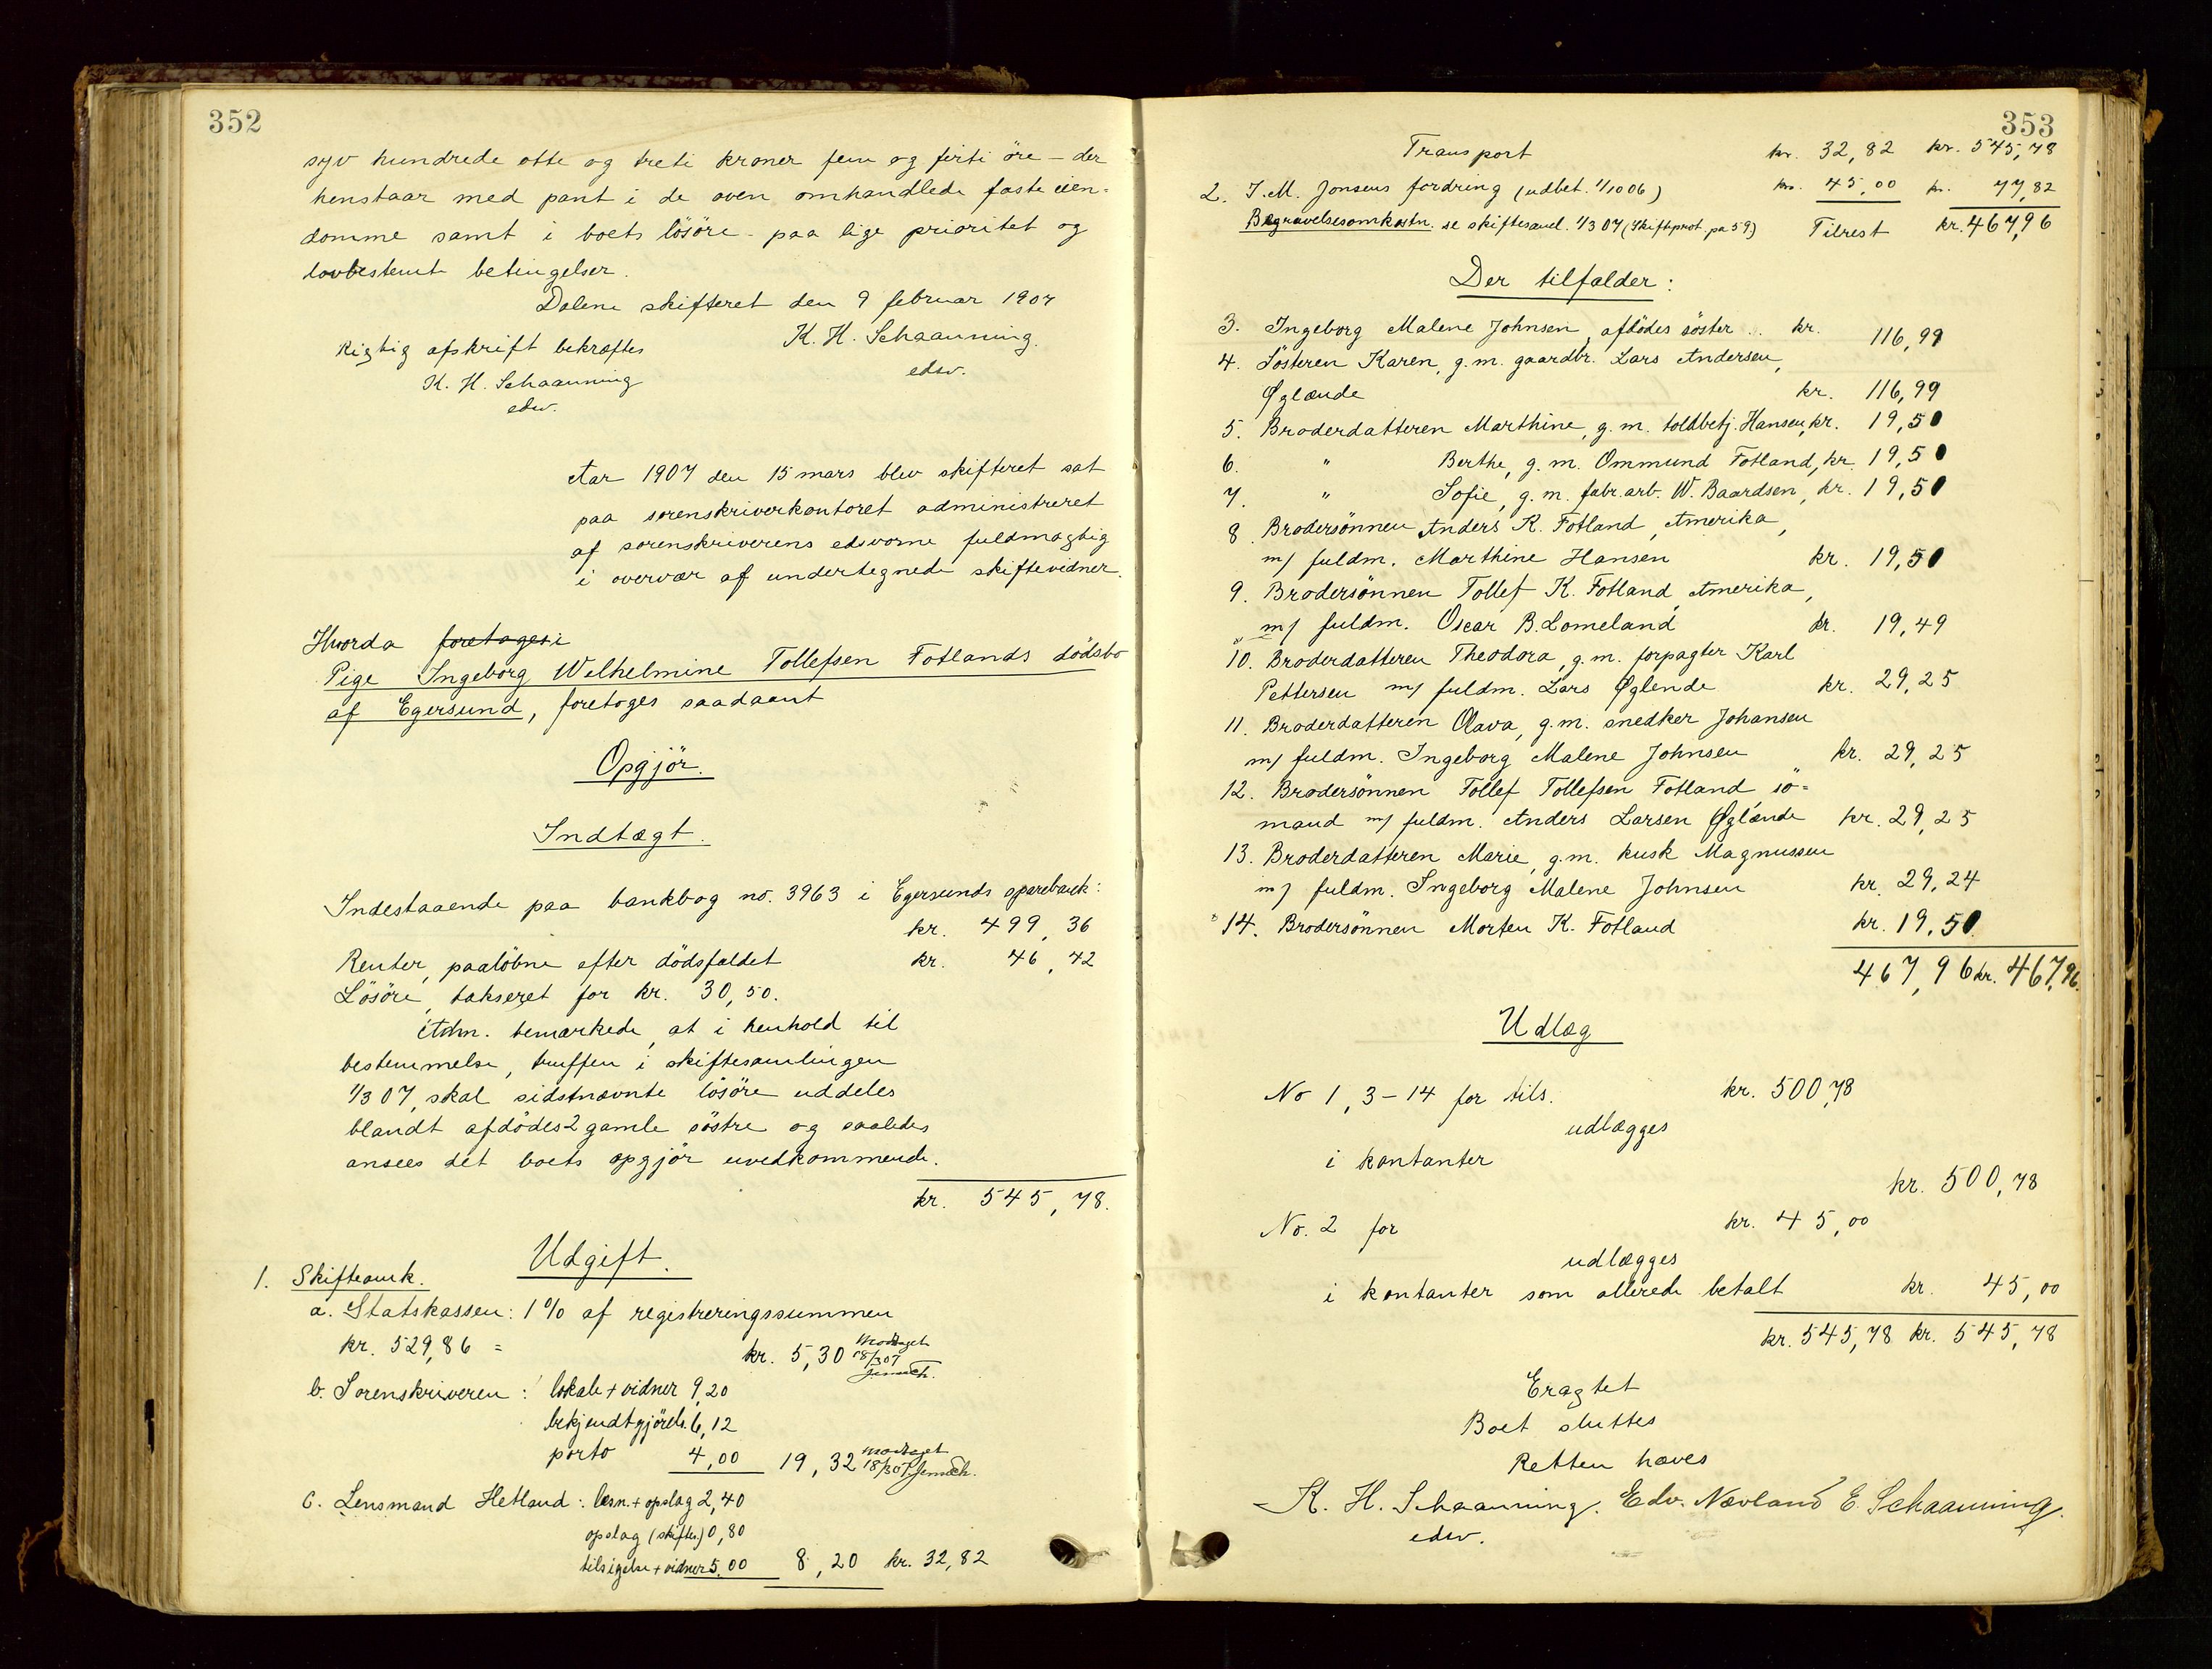 352
syv hundrede otte og treti kroner fem og firti öre – der
henstaar med pant i de oven omhandlede faste eien=
domme samt i boets lösöre – paa lige prioritet og
lovbestemt betingelser.
Dalene skifteret den 9 februar 1907
K. H. Schaanning.
edsv.
Rigtig afskrift bekræftes
K. H. Schaanning
edsv.
Aar 1907 den 15 mars blev skifteret sat
paa sorenskriverkontoret administreret
af sorenskriverens edsvorne fuldmægtig
i overvær af undertegnede skiftevidner.
Hvorda foretoges i
Pige Ingeborg Wilhelmine Tollefsen Fotlands dödsbo
af Egersund, foretoges saadaant
Opgjör.
Indtægt.
Indestaaende paa bankbog no. 3963 i Egersunds sparebank:
kr. 499,36
Renter, paalöbne efter dödsfaldet kr. 46,42
Lösöre, takseret for kr. 30,50.
Adm. bemærkede, at i henhold til
bestemmelse, truffen i skiftesamlingen
1/3 07, skal sidstnævnte lösöre uddeles
blandt afdödes 2 gamle söstre og saaledes
ansees det boets opgjör uvedkommende.
kr. 545,78.
Udgift.
1. Skifteomk.
a. Statskassen: 1 % af registreringssummen
kr. 529,86 = kr. 5,30 Modtaget 18/3 07
b. Sorenskriveren: lokale + vidner 9,20
bekjendtgjörels. 6,12
porto 4,00 19,32 modtaget 18/3 07
c. Lensmand Hetland: læsn. + opslag 2,40
opslag (skifter.) 0,80
tilsigelse + vidner 5,00 8,20 kr. 32,82
353
Transport kr. 32,82 kr. 545,78
2. I. M. Jonsens fordring (udbet. 1/10 06) kr. 45,00 kr. 77,82
Begravelsesomkostn. se skiftesaml. 1/3 07 (Skiftprot. pa 59) Tilrest kr. 467,96
Der tilfalder:
3. Ingeborg Malene Johnsen, afdödes söster .. kr. 116,99
4. Sösteren Karen, g. m. gaardbr. Lars Andersen,
Øglænde kr. 116,99
5. Broderdatteren Marthine, g. m. toldbetj. Hansen, kr. 19,50
6. " Berthe, g. m. Ommund Fotland, kr. 19,50
7. " Sofie, g. m. fabr. arb. W. Baardsen, kr. 19,50
8. Brodersönnen Anders K. Fotland, Amerika,
m/ fuldm. Marthine Hansen kr. 19,50
9. Brodersönnen Tollef K. Fotland, Amerika,
m/ fuldm. Oscar B. Lomeland kr. 19,49
10. Broderdatteren Theodora, g. m. forpagter Karl
Pettersen m/ fuldm. Lars Øglende kr. 29,25
11. Broderdatteren Olava, g. m. snedker Johansen
m/ fuldm. Ingeborg Malene Johnsen kr. 29,25
12. Brodersönnen Tollef Tollefsen Fotland sö=
mand m/ fuldm. Anders Larsen Øglænde kr. 29,25
13. Broderdatteren Marie, g. m. kusk Magnussen
m/ fuldm. Ingeborg Malene Johnsen kr. 29,24
14. Brodersönnen Morten K. Fotland kr. 19,50
467,96 kr. 467,96.
Udlæg
No 1, 3 – 14 for tils. kr. 500,78
udlægges
i kontanter
kr. 500,78
No. 2 for kr. 45,00
udlægges
i kontanter som allerede betalt kr. 45,00
kr. 545,78 kr. 545,78
Eragtet
Boet sluttes
Retten hæves
K. H. Schaanning. Edv. Nævland E. Schaanning.
edsv.